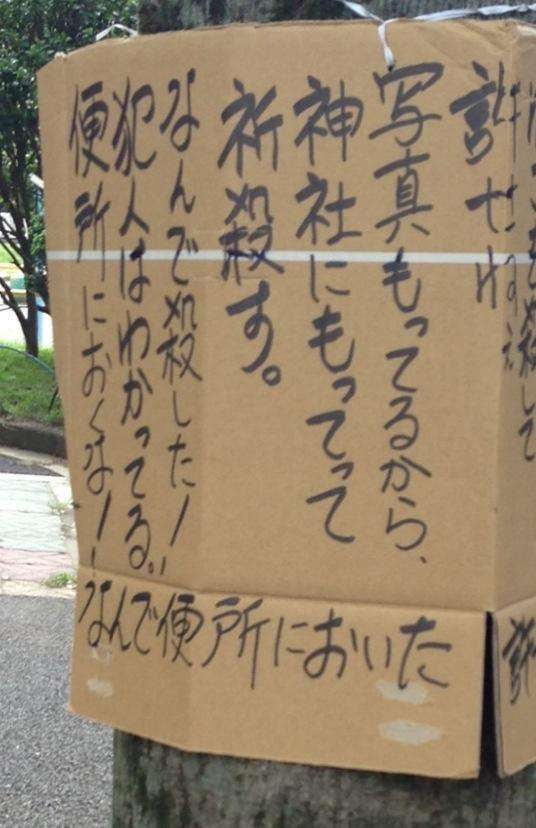 を殺して
許せ
写真もってるから、
神社にもってって
祈殺す。
なんで殺した!
犯人はわかってる。
便所におくな!!
なんで便所においた
許